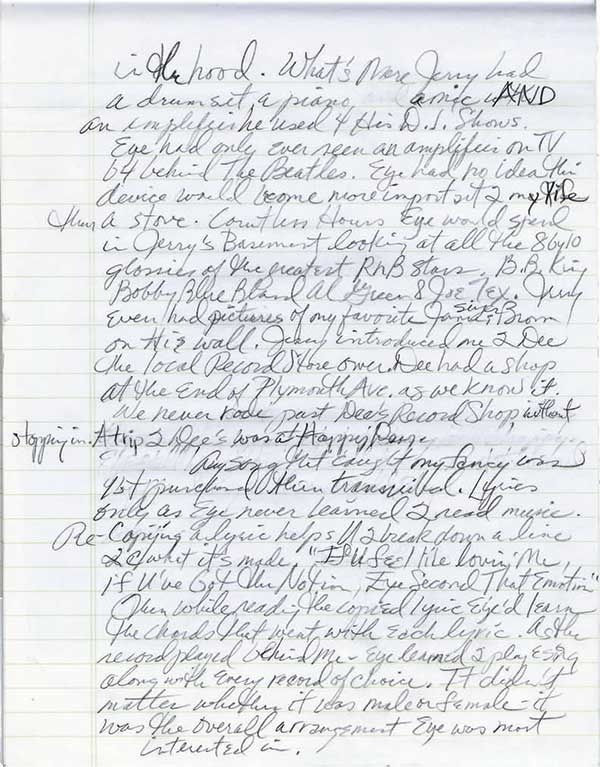 in the hood. What's more Jerry had
a drumset, a piano, a mic AND
an amplifier he used 4 His D.J. Shows.
Eye had only ever seen an amplifier on TV
b4 behind The Beatles. Eye had no idea this
device would become more important 2 my life
than a stove. Countless Hours Eye would spend
in Jerry's Basement looking at all the 8 by 10
glossies of the greatest RnB Stars. B.B. King
Bobby Blue Bland Al Green & Joe Tex. Jerry
even had pictures of my favorite singer James Brown
on His wall. Jerry introduced me 2 Dee
the local Record Store owner. Dee had a shop
at the end of Plymouth Ave. as we know it.
We never rode past Dee's Record Shop without
stopping in. A trip 2 Dee's was a Happy
Any song that caught my fancy was
1st purchased then transcribed. Lyrics
only as Eye never learned 2 read music.
Re-Copying a lyric helps U 2 break down a line
2 C what it's made. "If U feel like lovin' Me,
if U've Got the Notion, Eye Second That Emotion"
Then while reading the copied lyric Eye'd learn
the chords that went with Each lyric. As the
record played behind Me - Eye learned 2 play & sing
along with Every record of choice. It didn't
matter whether it was male or female - it
was the overall arrangement Eye was most
interested in.